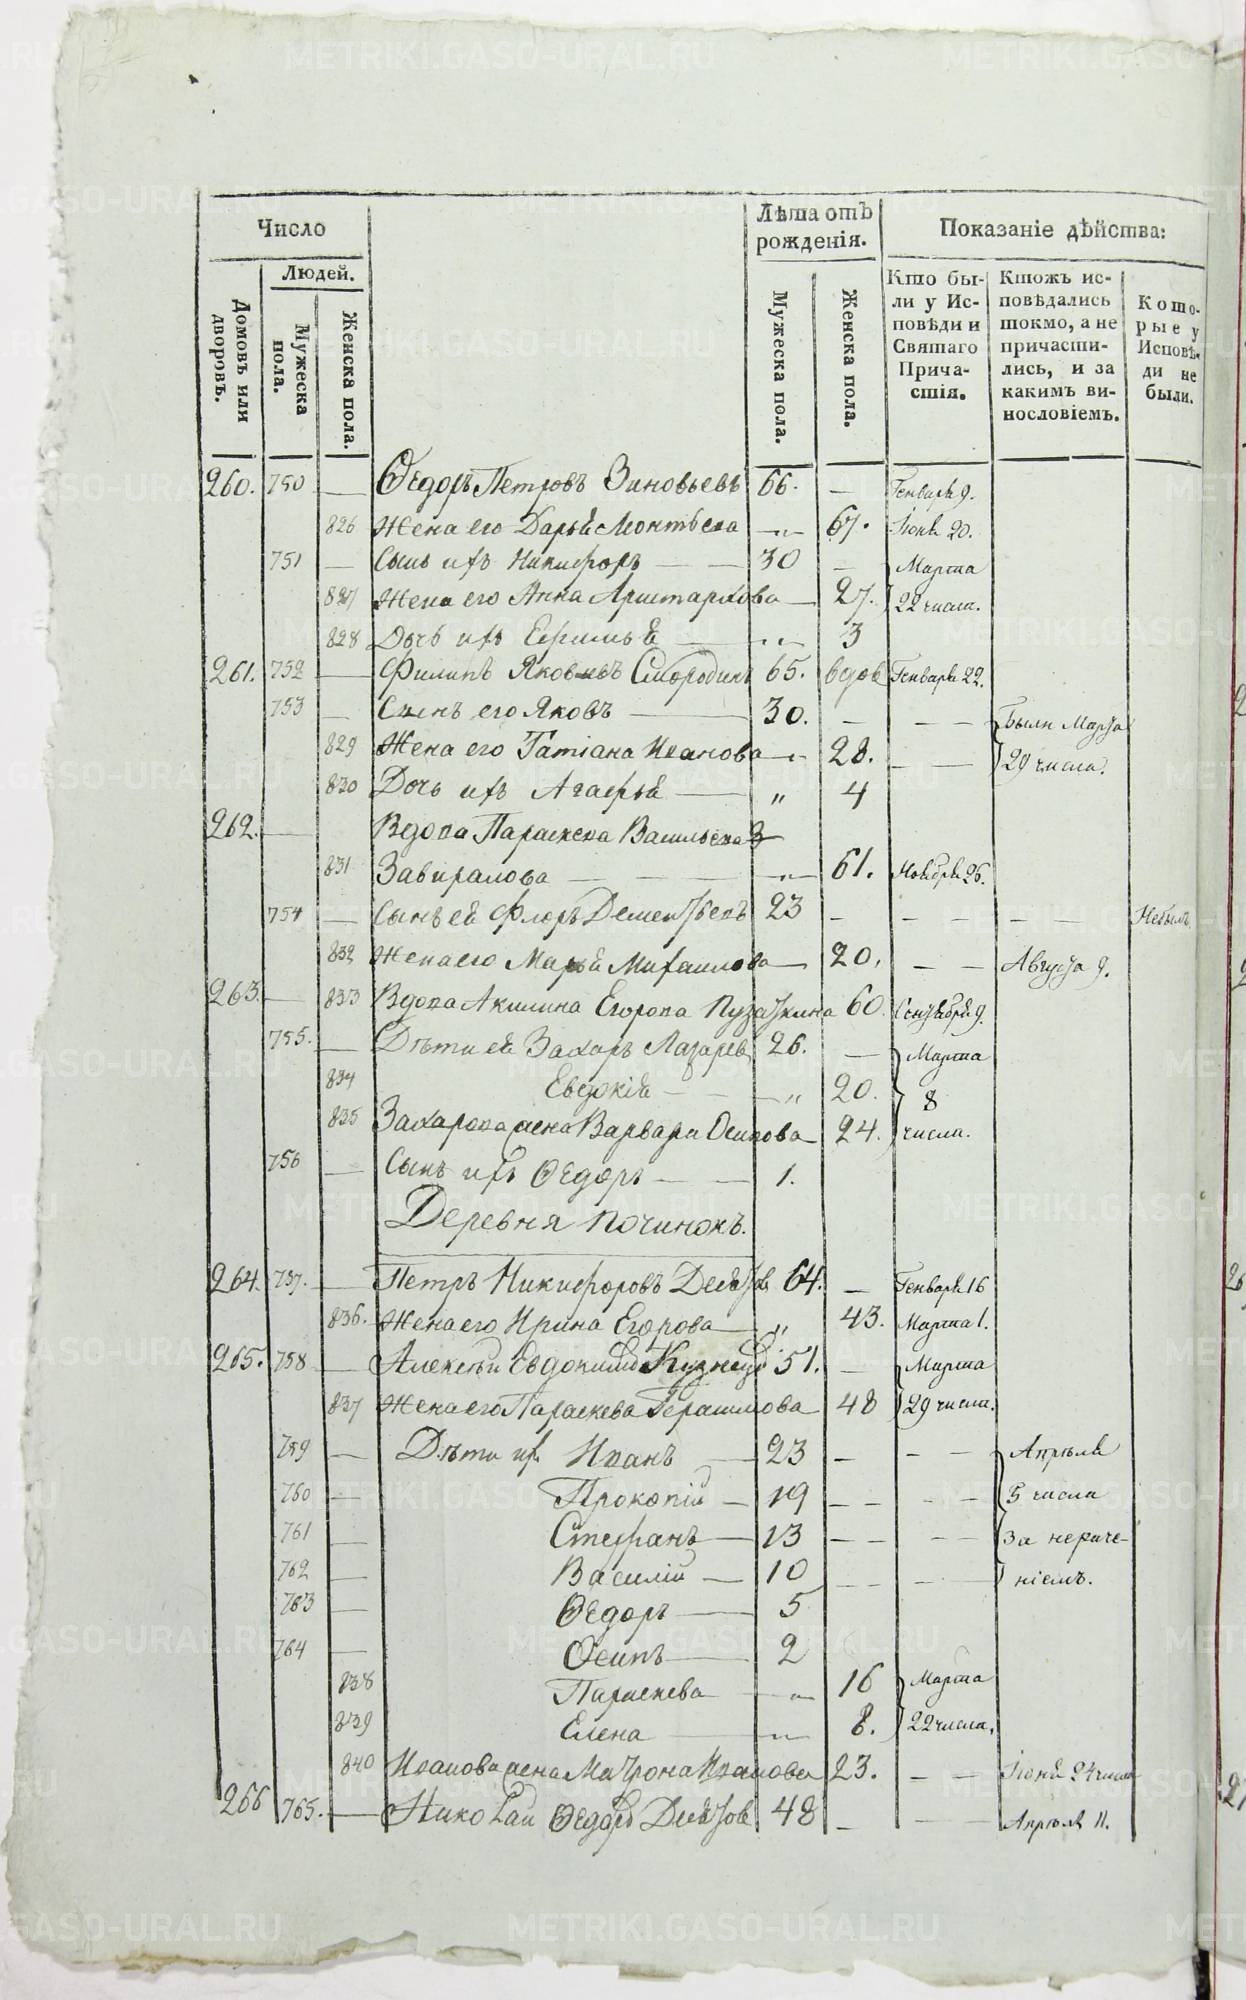 Число
Лѣта отъ рожденія.
Показаніе дѣйства:
Людей.
Домовъ или дворовъ.
Мужеска пола.
Женска пола.
Мужеска пола.
Женска пола.
Кто были у Исповѣди и Святаго Причастія.
Ктожъ исповѣдались токмо, а не причастились, и за какимъ винословіемъ.
Которые у Исповѣди не были.
260. 750 — Ѳедоръ Петровъ Зиновьевъ 66. — Генваря 9.
826 Жена его Дарья Леонтьева — „ — 67. Іюня 20.
751 — Сынъ ихъ Никифоръ — 30 — Марта
827 Жена его Анна Аристархова — 27. 22 числа.
828 Дочь ихъ Ефимья — „ — 3
261. 752 — Филипъ Яковлевъ Смородинъ 65. вдов Генваря 22.
753 — Сынъ его Яковъ — 30. — — — Были Марта
829 Жена его Татіана Иванова — „ 28. — — 29 числа.
830 Дочь ихъ Агафья — „ 4
262. — Вдова Параскева Васильева
831 Завиралова — — — „ — 61. Ноября 26.
754 — Сынъ ея Флоръ Дементьевъ 23 — — — — — Небылъ
832 Жена его Марья Михаилова — 20. — — Августа 9.
263. — 833 Вдова Акилина Егорова Пузаткина 60. Сентября 9.
755. — Дѣти ея Захаръ Лазаревъ 26. — Марта
834 Евдокія — — „ 20. 8
835 Захарова жена Варвара Осипова — 24. числа.
756 — Сынъ ихъ Ѳедоръ — — 1.
Деревня Починокъ.
264. 757. — Петръ Никифоровъ 64. — Генваря 16
836. Жена его Ирина Егорова — „ 43. Марта 1.
265. 758 — Алексѣй Евдокимовъ Кузнецовъ 51. — Марта
837 Жена его Параскева Герасимова 48 29 числа.
759 — Дѣти их Иванъ — 23 — — — Апрѣля
760 — Прокопій — 19 — — — — 5 числа
761 — Стефанъ — 13 — — — — За нераче-
762 — Василій — 10 — — — — ніемъ.
763 — Ѳедоръ — 5
764 — Осипъ — 2
838 Параскева — „ 16 Марта
839 Елена — „ — 8. 22 числа.
840 Иванова жена Матрона Иванова 23. — — Іюня 24 числа
266 765. — Николай Ѳедоровъ 48 — — — Апрѣля 11.
METRIKI.GASO-URAL.RU